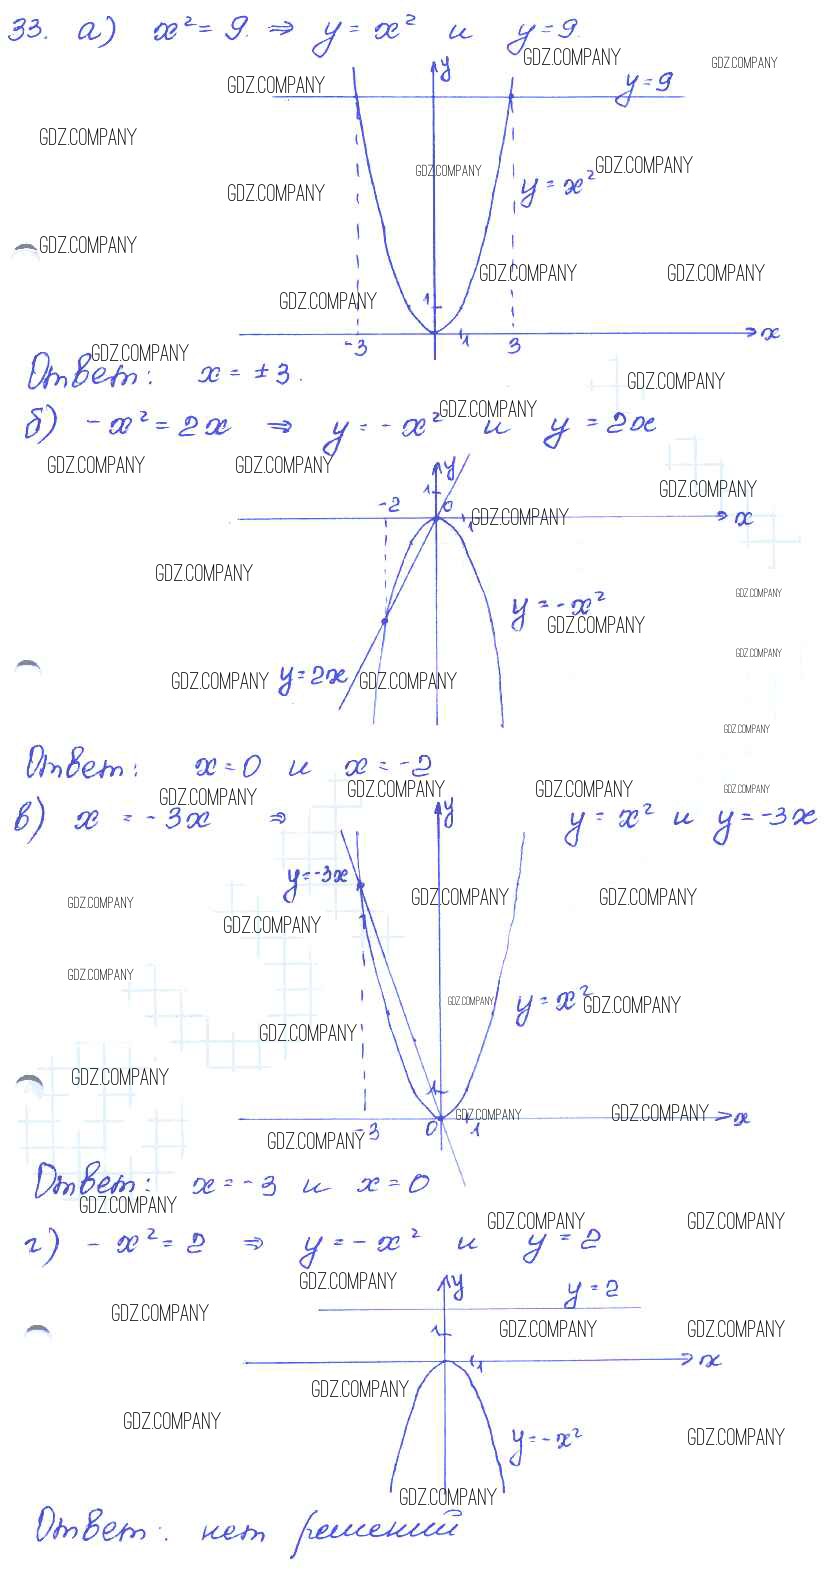 33. а) x² = 9. ⇒ y = x² и y = 9.
y
y = 9
y = x²
1
-3 1 3 x
Ответ: x = ±3.
б) -x² = 2x ⇒ y = -x² и y = 2x
y
1
-2 0 1 x
y = -x²
y = 2x
Ответ: x = 0 и x = -2
в) x = -3x ⇒ y = x² и y = -3x
y
y = -3x
y = x²
1
-3 0 1 x
Ответ: x = -3 и x = 0
г) -x² = 2 ⇒ y = -x² и y = 2
y
y = 2
1
1 x
y = -x²
Ответ: нет решений
GDZ.COMPANY